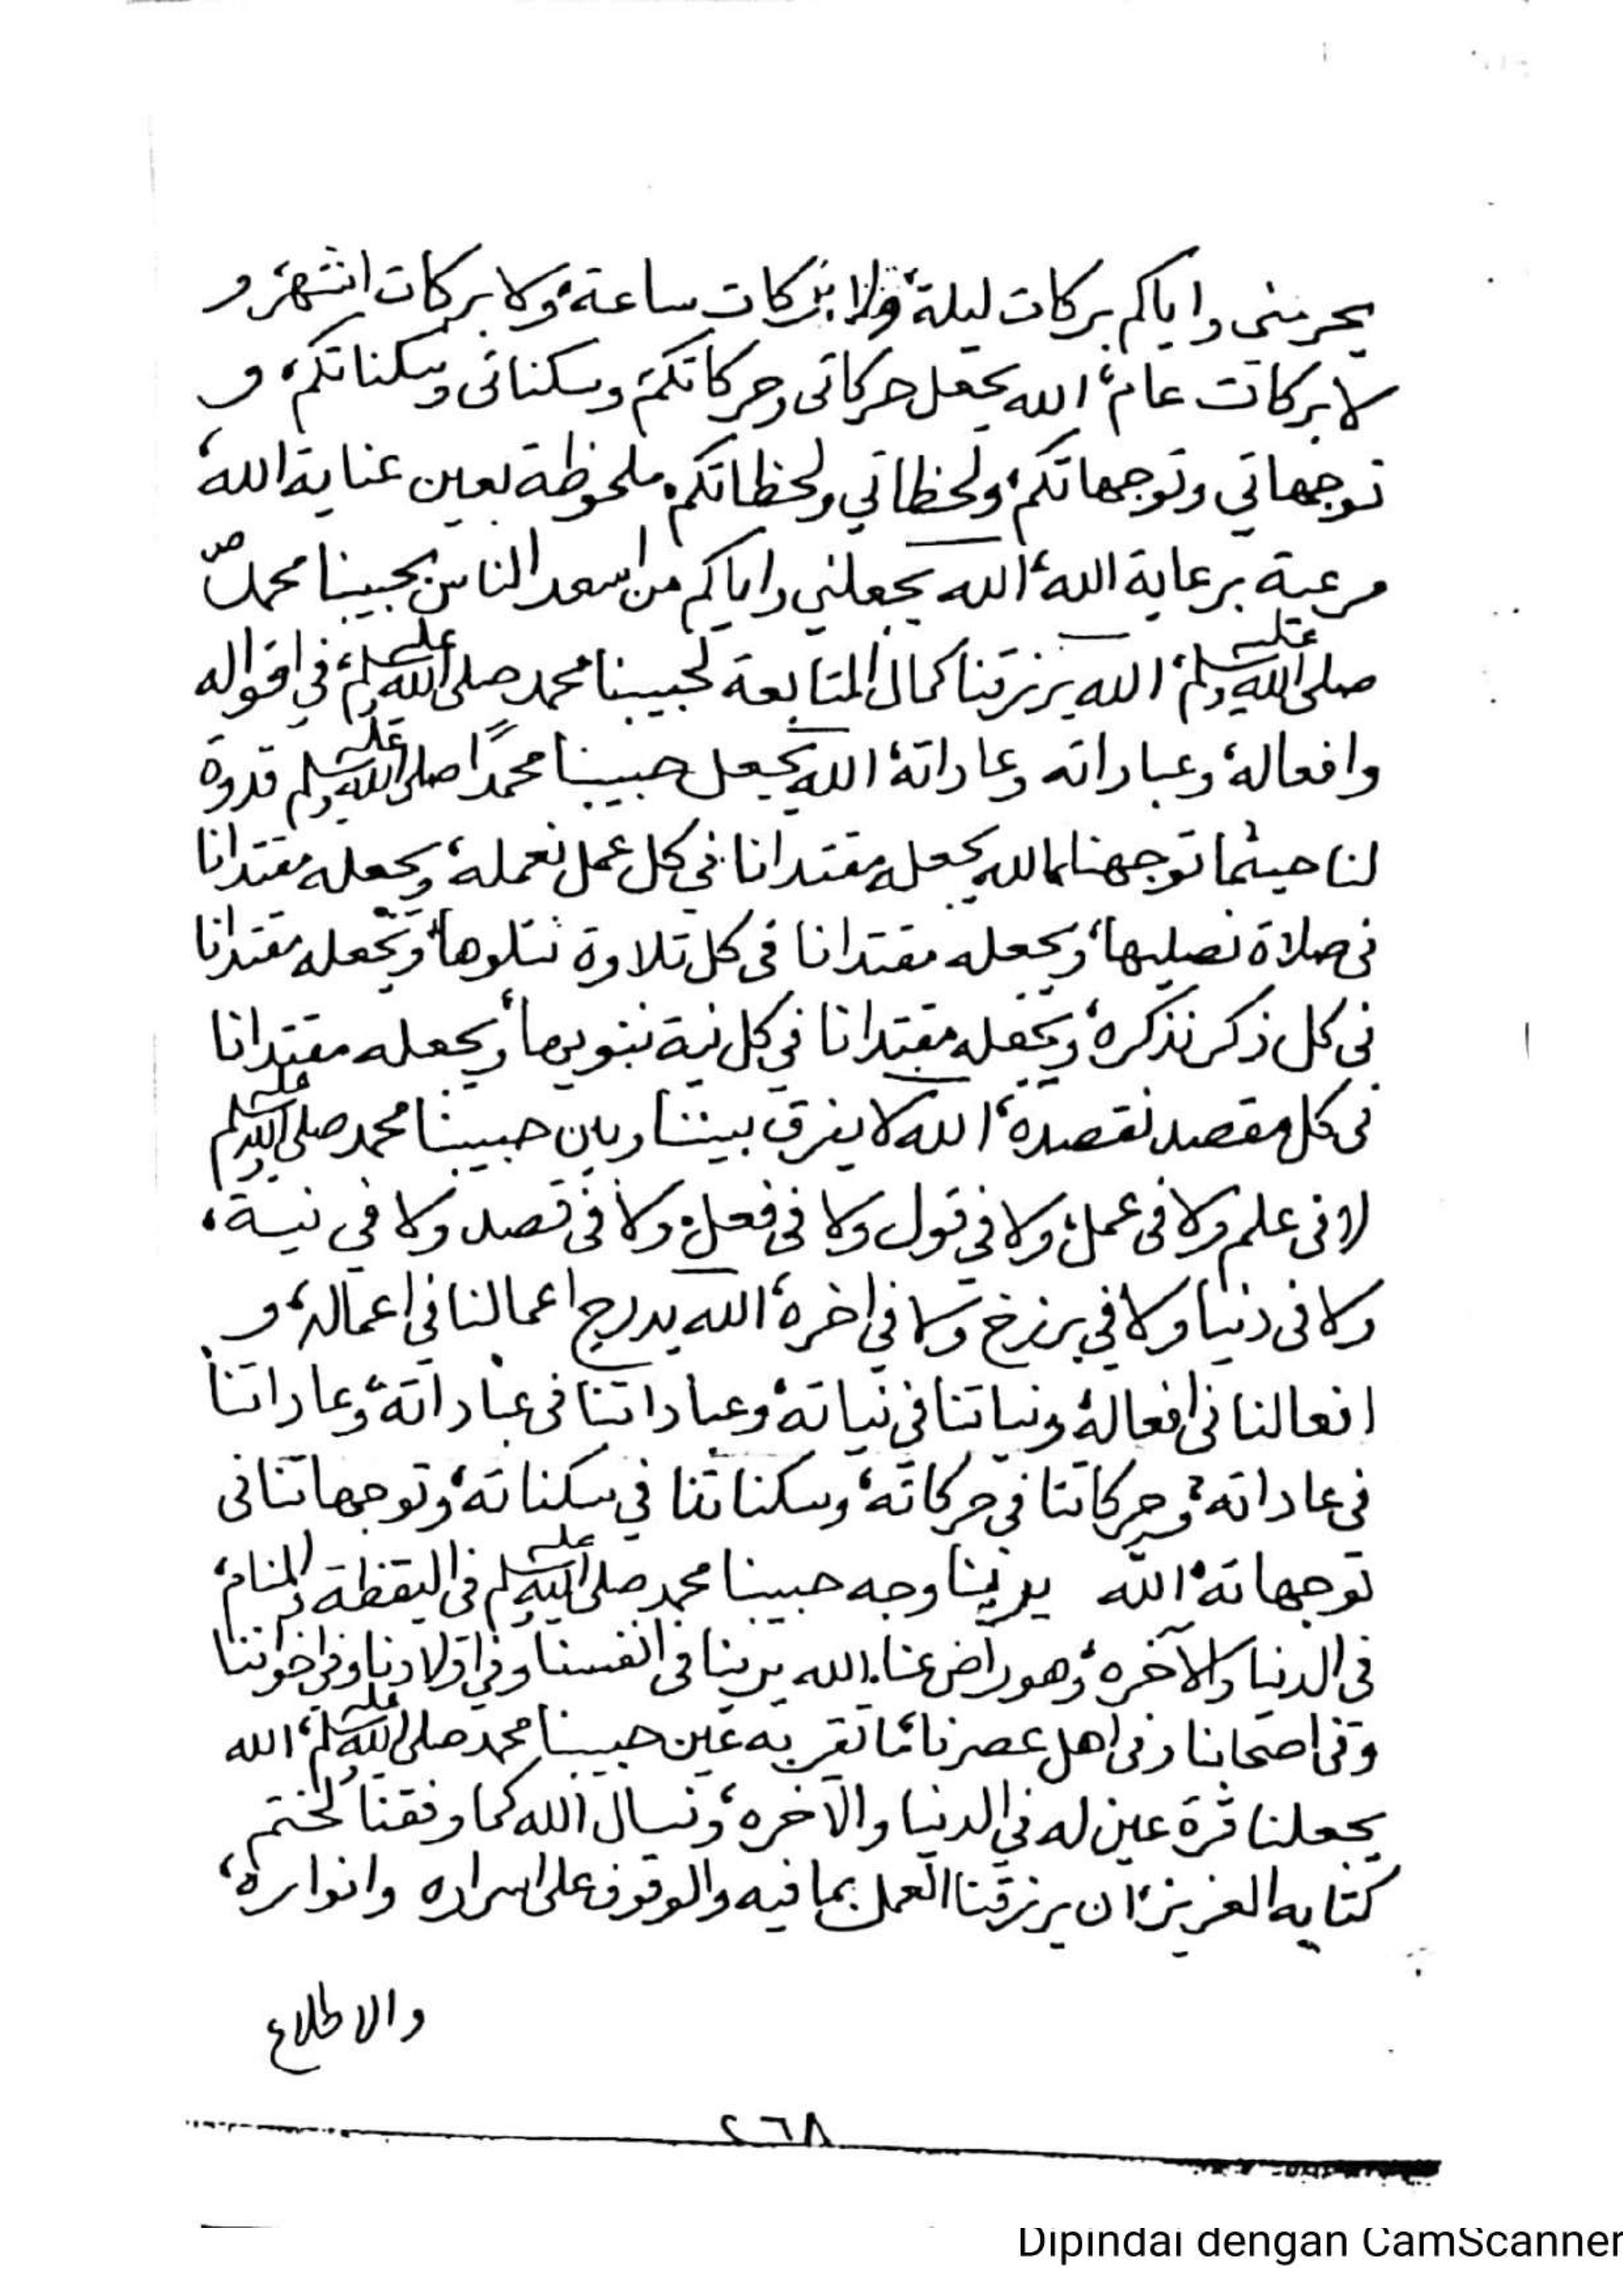 يحرمني واياكم بركات ليلة، ولا بركات ساعة، ولا بركات اشهر، و
لا بركات عام، الله يجعل حركاتي وحركاتكم، وسكناتي وسكناتكم، و
توجهاتي وتوجهاتكم، ولحظاتي ولحظاتكم، ملحوظة بعين عناية الله،
مرعية برعاية الله، الله يجعلني واياكم من اسعد الناس بحبيبنا محمد
صلى الله عليه وسلم، الله يرزقنا كمال المتابعة لحبيبنا محمد صلى الله عليه وسلم، في اقواله
وافعاله، وعباداته وعاداته، الله يجعل حبيبنا محمدًا صلى الله عليه وسلم قدوة
لنا حيثما توجهنا، الله يجعله مقتدانا في كل عمل نعمله، ويجعله مقتدانا
في صلاة نصليها، ويجعله مقتدانا في كل تلاوة نتلوها، ويجعله مقتدانا
في كل ذكر نذكره، ويجعله مقتدانا في كل نية ننويها، ويجعله مقتدانا
في كل مقصد نقصده، الله لا يفرق بيننا وبين حبيبنا محمد صلى الله عليه وسلم
لا في علم ولا في عمل، ولا في قول ولا في فعل، ولا في قصد ولا في نية،
ولا في دنيا ولا في برزخ ولا في اخره، الله يدرج اعمالنا في اعماله، و
افعالنا في افعاله، ونياتنا في نياته، وعباداتنا في عباداته، وعاداتنا
في عاداته، وحركاتنا في حركاته، وسكناتنا في سكناته، وتوجهاتنا في
توجهاته، الله يرينا وجه حبيبنا محمد صلى الله عليه وسلم في اليقظة والمنام،
في الدنيا والآخره، وهو راض عنا، الله يرينا في انفسنا وفي اولادنا وفي اخواننا
وفي اصحابنا وفي اهل عصرنا، ما تقر به عين حبيبنا محمد صلى الله عليه وسلم، الله
يجعلنا قرة عين له في الدنيا والآخره، ونسال الله كما وفقنا لختم
كتابه العزيز، ان يرزقنا العمل بما فيه والوقوف على اسراره وانواره،
والاطلاع
٢٦٨
Dipindai dengan CamScanner